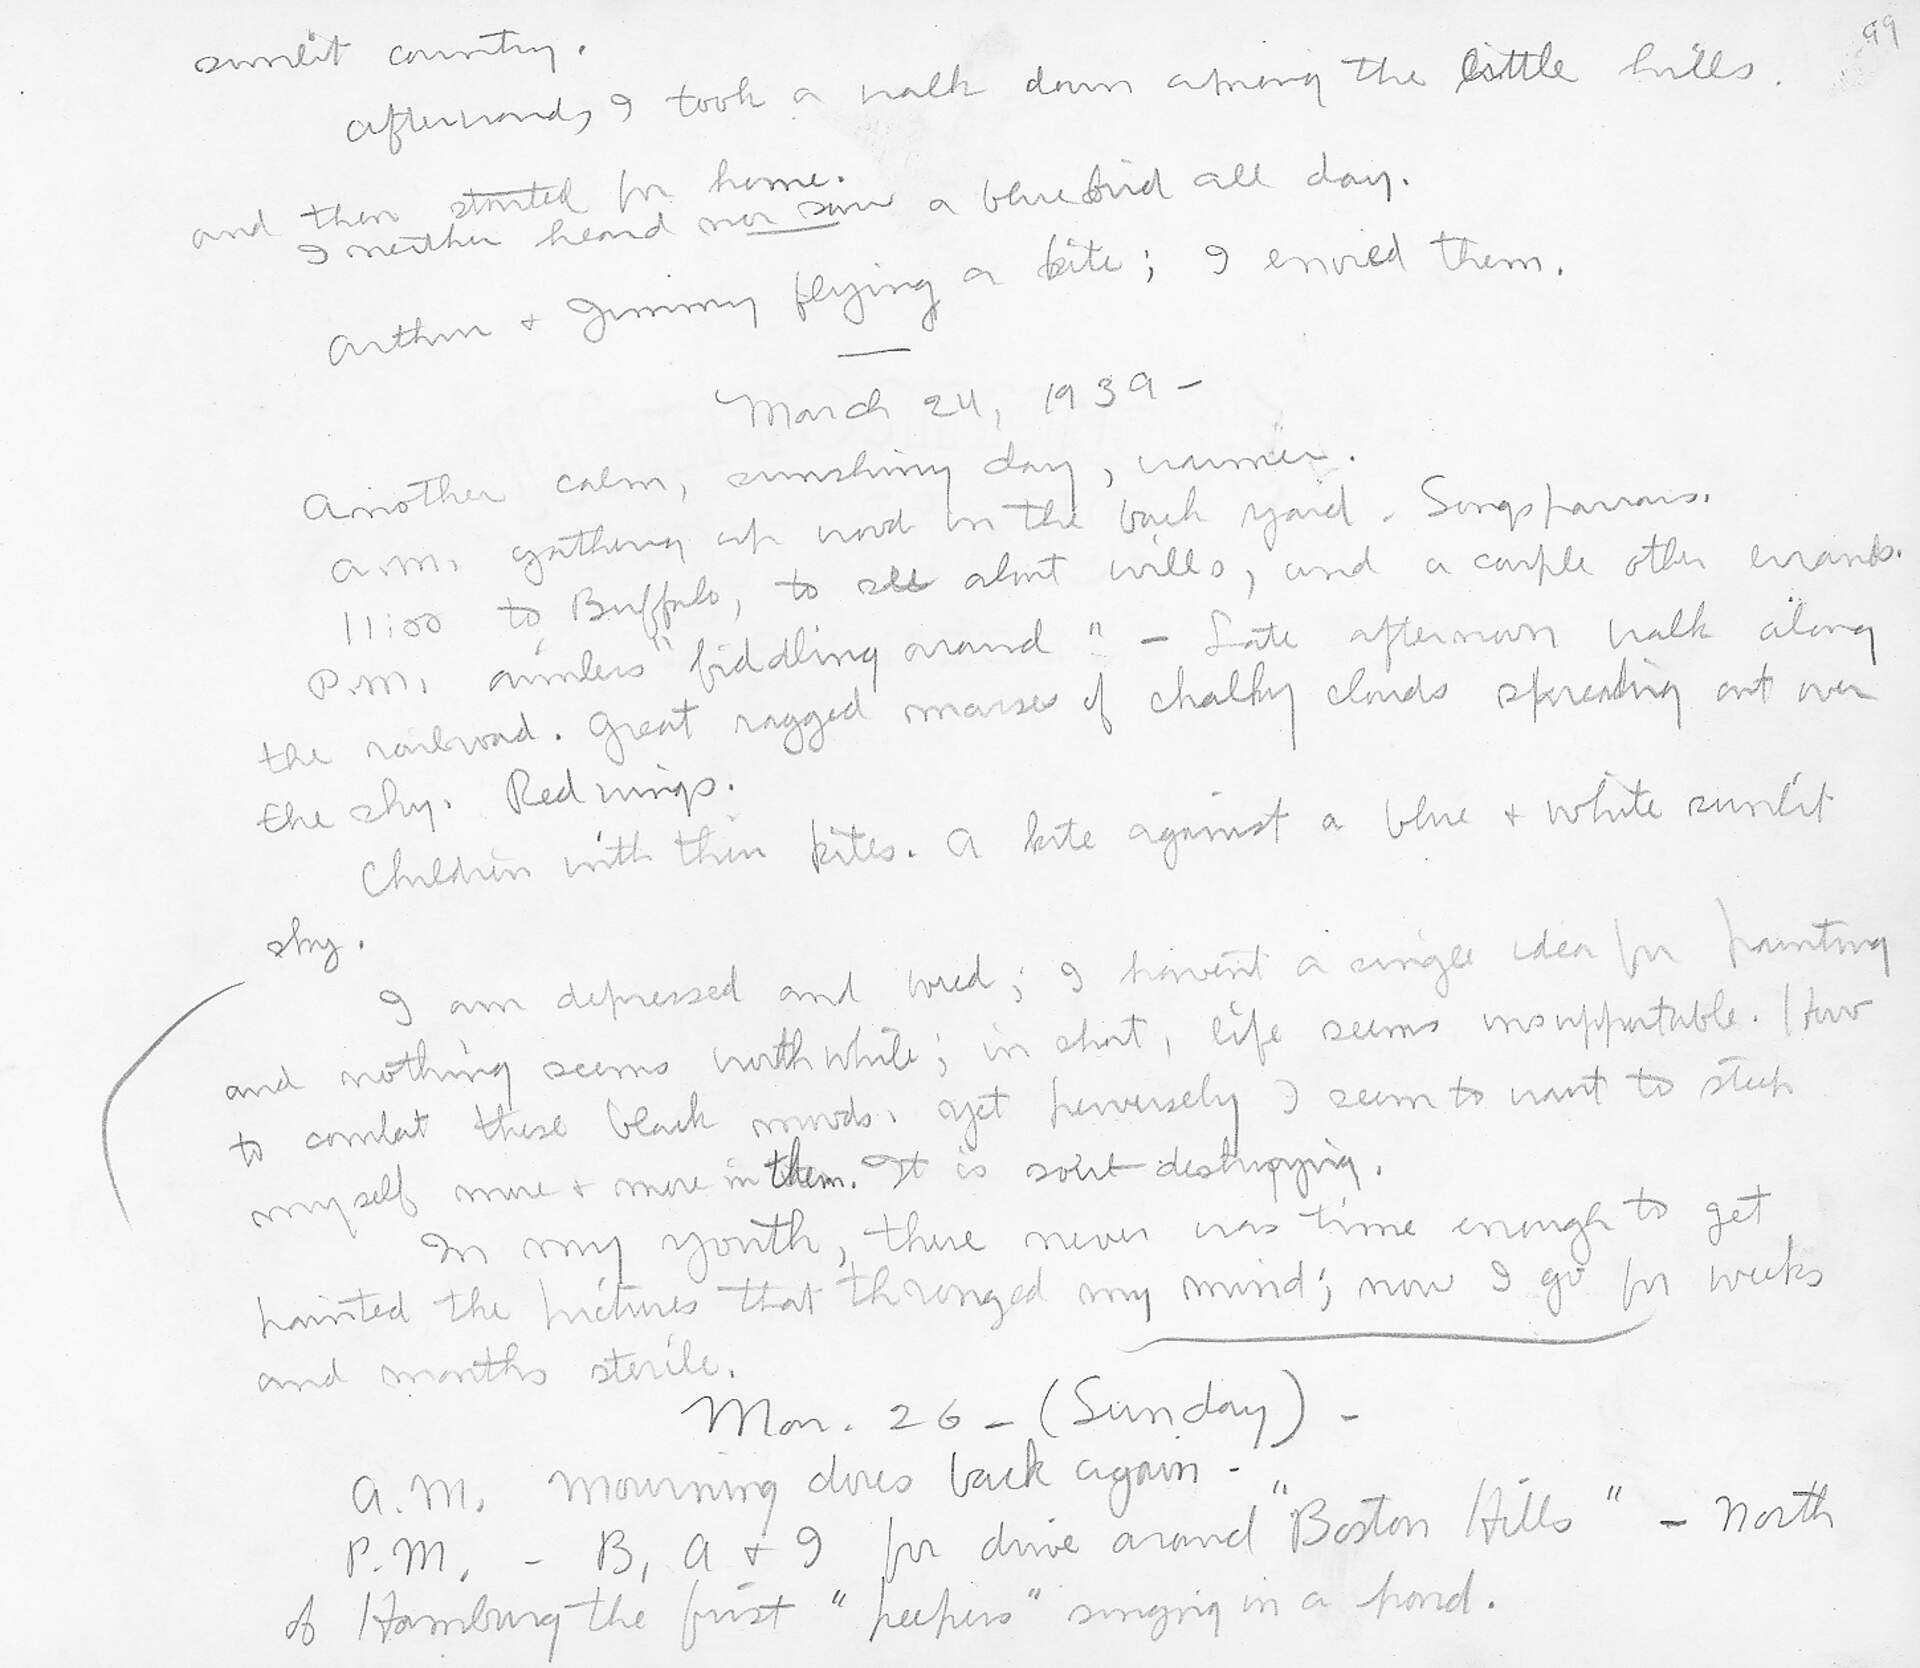 99
sunlit country.
Afterwards I took a walk down among the little hills.
and then started for home.
I neither heard nor saw a bluebird all day.
Arthur + Jimmy flying a kite; I envied them.
March 24, 1939 -
Another calm, sunshiny day, warmer.
A.M. gathering up wood in the back yard. Songsparrows.
11:00 to Buffalo, to see about wills, and a couple other errands.
P.M. aimless "fiddling around" - Late afternoon walk along
the railroad. Great ragged masses of chalky clouds spreading out over
the sky. Red wings.
Children with their kites. A kite against a blue + white sunlit
sky.
I am depressed and tired; I havent a single idea for painting
and nothing seems worthwhile; in short, life seems insupportable. How
to combat these black moods. Yet perversely I seem to want to steep
myself more + more in them. It is soul-destroying.
In my youth, there never was time enough to get
painted the pictures that thronged my mind; now I go for weeks
and months sterile.
Mar. 26 - (Sunday) -
A.M. Mourning doves back again -
P.M. - B, A + I for drive around "Boston Hills" - North
of Hamburg the first "peepers" singing in a pond.